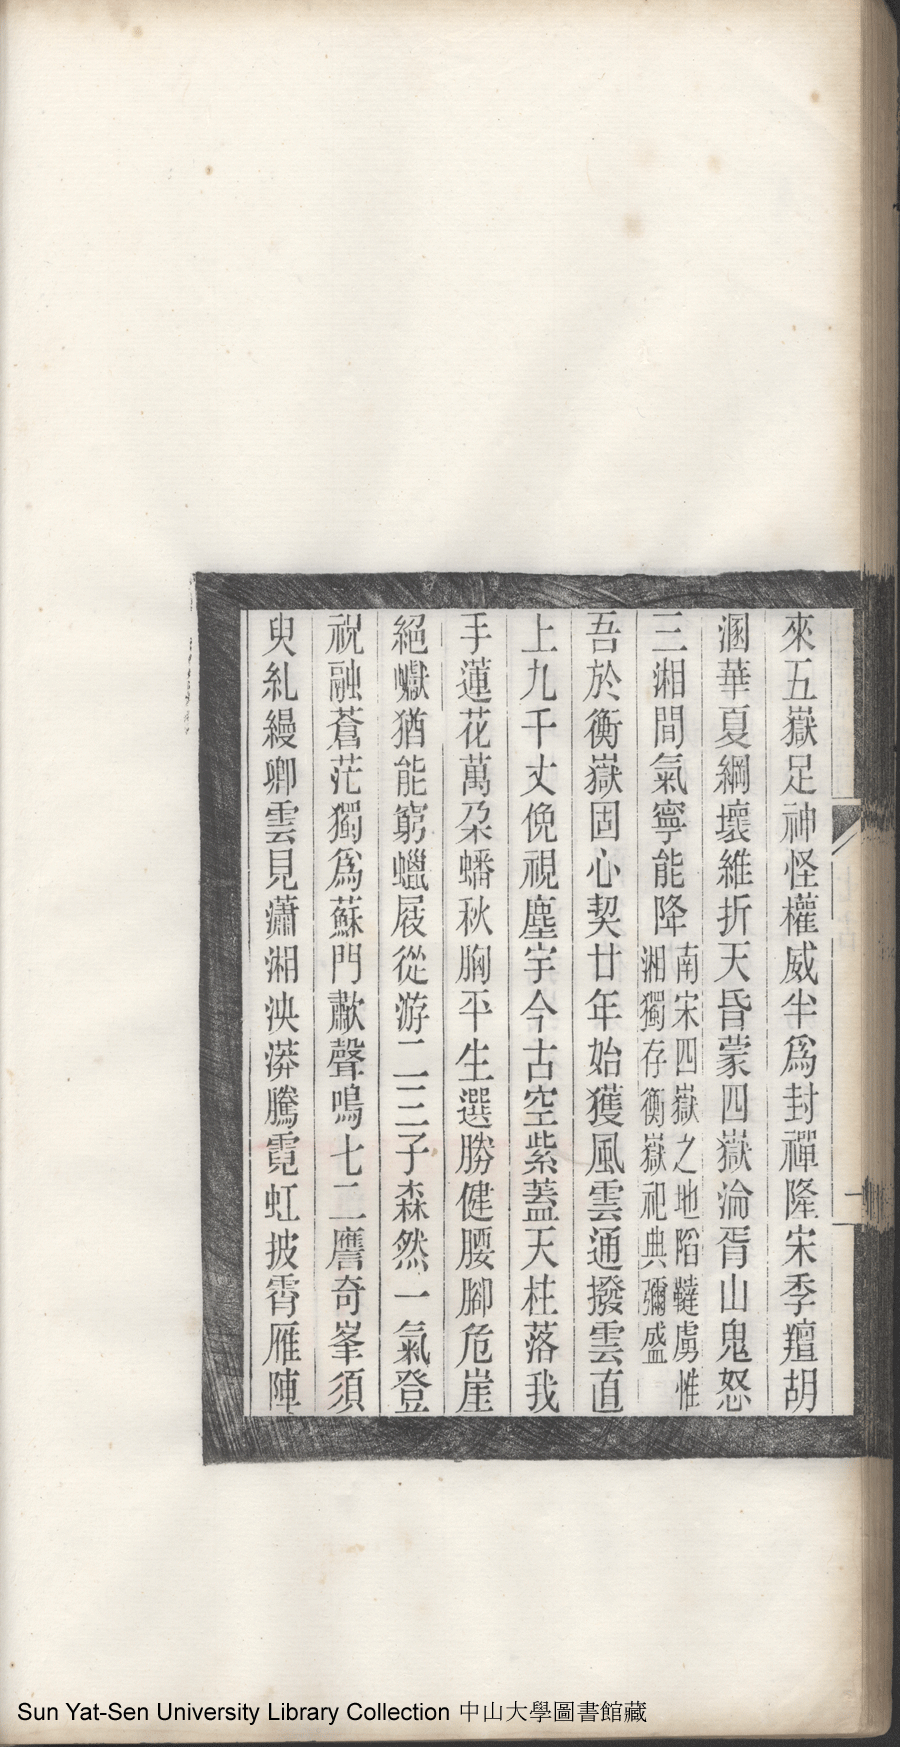 來五嶽足神怪權威半爲封禪隆宋季羶胡
溷華夏綱壞維折天昏蒙四嶽淪胥山鬼怒
三湘間氣寧能降南宋四嶽之地陷韃虜惟湘獨存衡嶽祀典彌盛
吾於衡嶽固心契廿年始獲風雲通撥雲直
上九千丈俛視塵宇今古空紫蓋天柱落我
手蓮花萬朶蟠秋胸平生選勝健腰腳危崖
絕巘猶能窮蠟屐從游二三子森然一氣登
祝融蒼茫獨爲蘇門歗聲鳴七二譍奇峯須
臾糺縵卿雲見瀟湘泱漭騰霓虹披霄雁陣
一
Sun Yat-Sen University Library Collection 中山大學圖書館藏